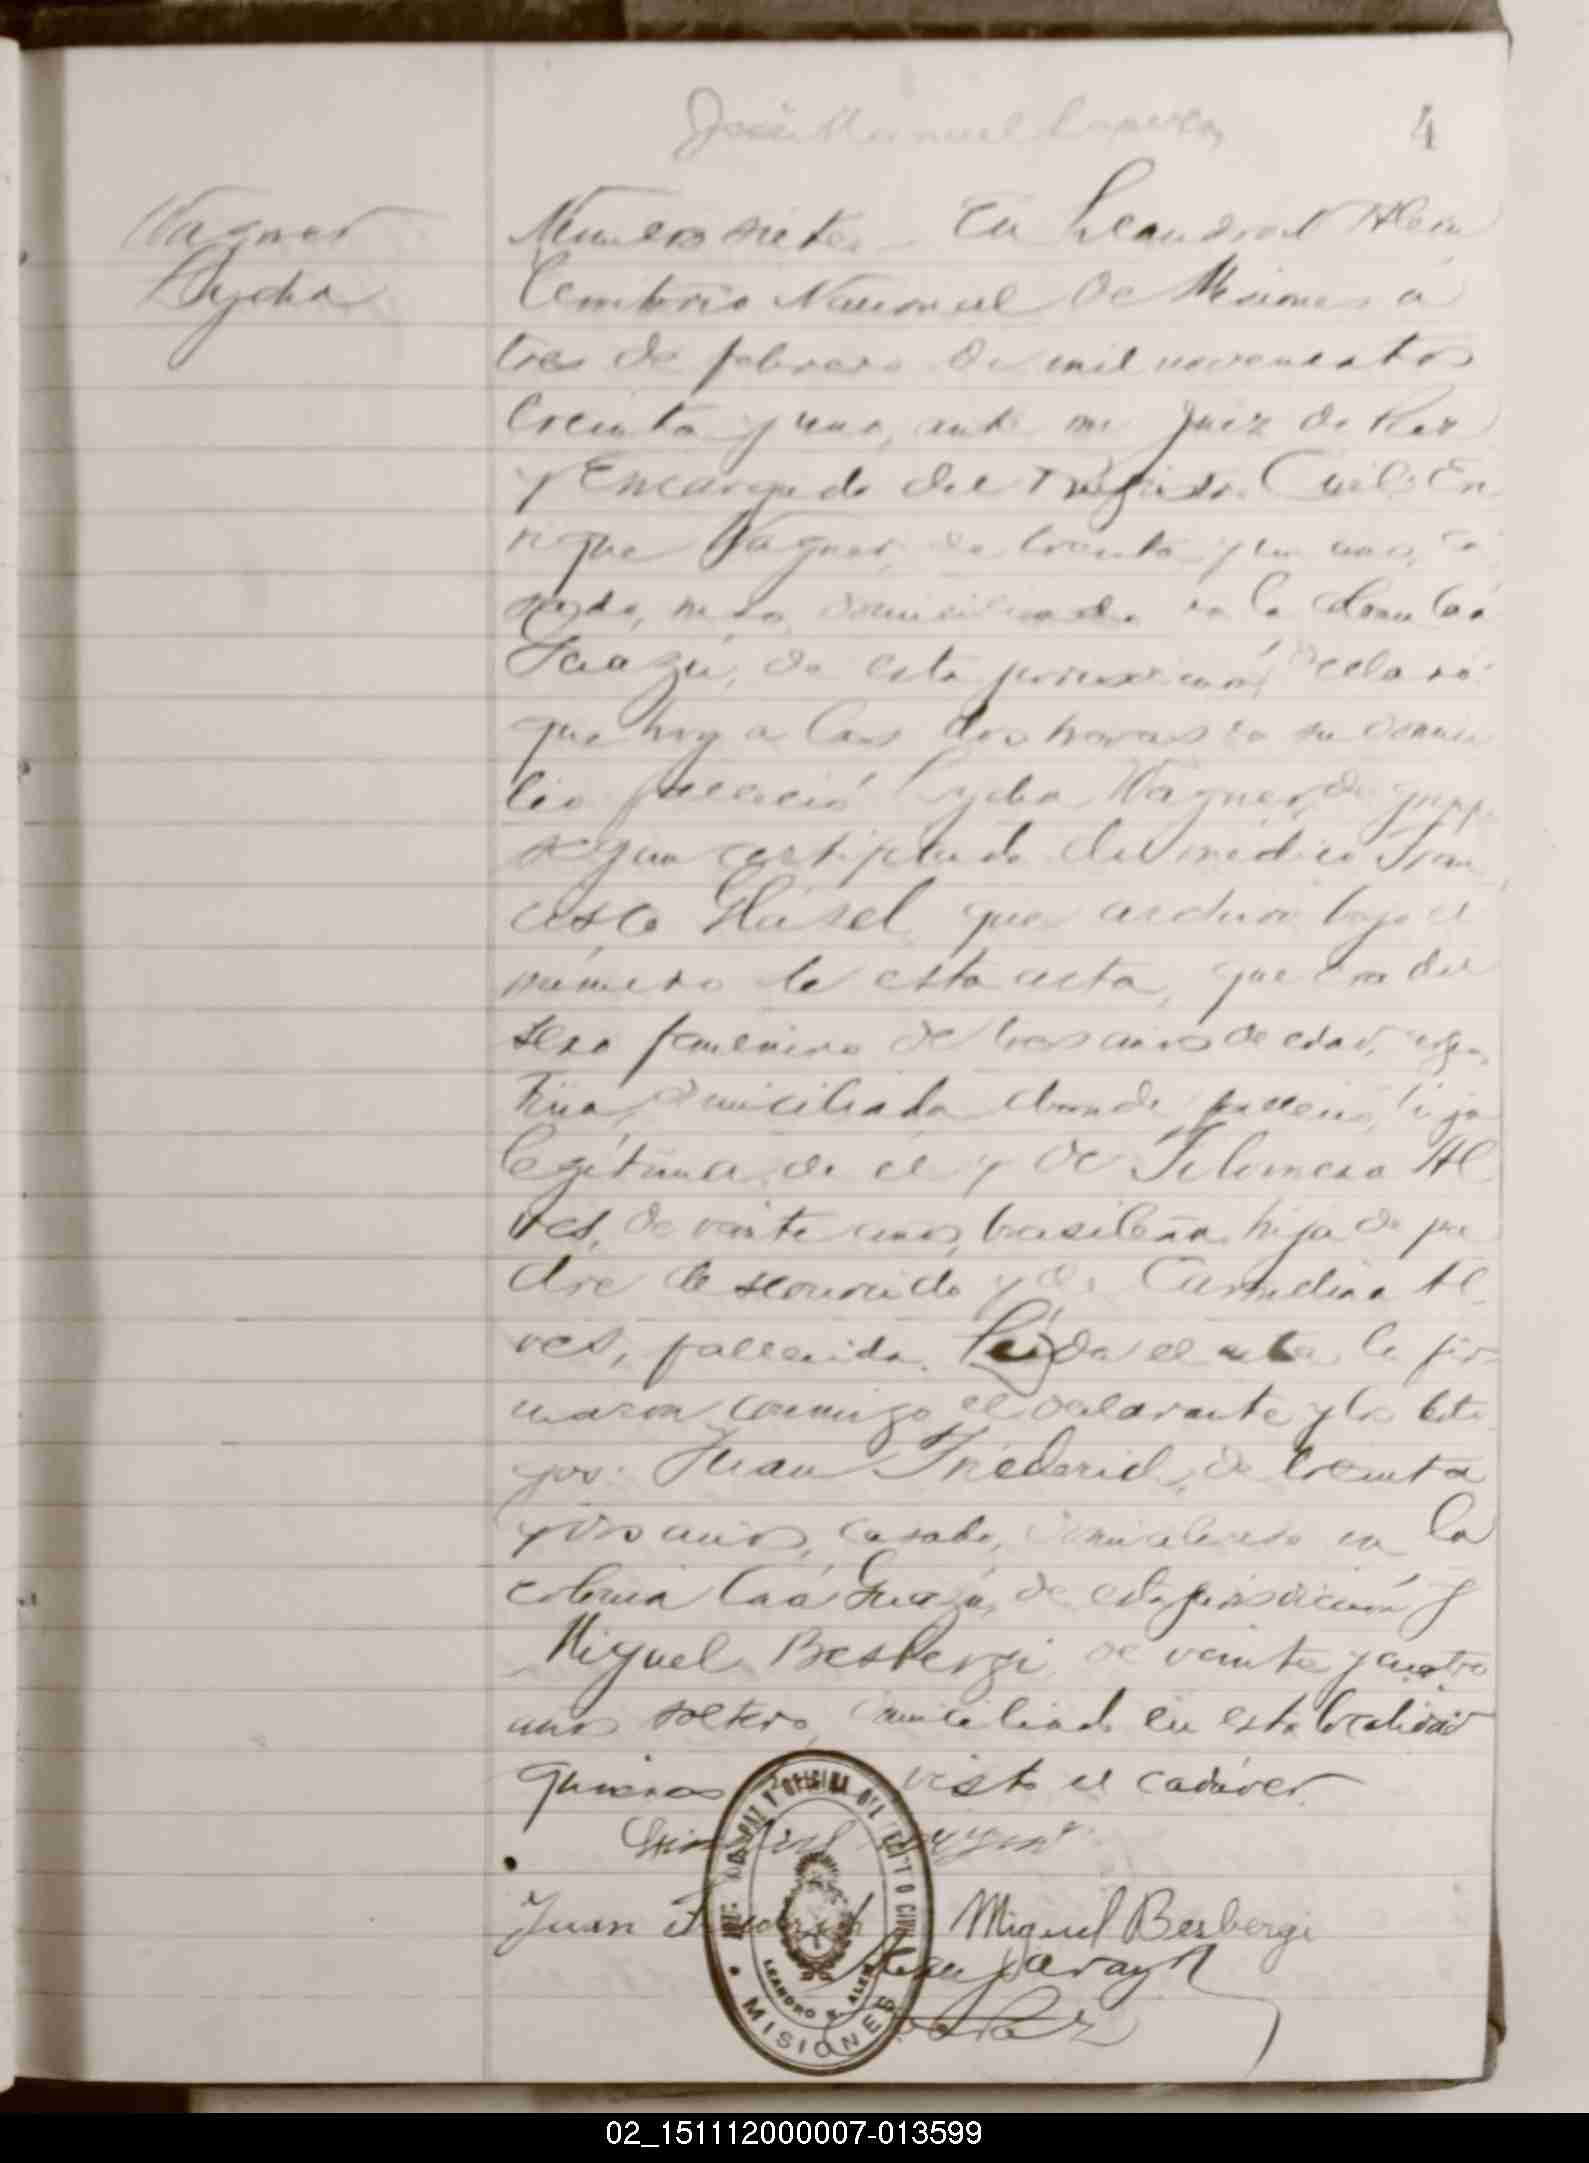 José Manuel
4
Wagner
Lydia
Numero siete. En Leandro N Alem
Territorio Nacional de Misiones a
tres de febrero de mil novecientos
treinta y uno, ante mi Juez de Paz
y Encargado del Registro Civil: En
rique Wagner, de treinta y un años, ca
sado, domiciliado en la colonia Caá
Guazú, de esta jurisdicción, declaró:
que hoy a las dos horas en su domici
lio falleció Lydia Wagner, de
segun certificado del médico Fran
cisco Häsel que archivo bajo el
número de esta acta, que era del
sexo femenino de tres años de edad, argen
tina, domiciliada donde falleció, hija
legítima de él y de Filomena Al
ves, de veinte años, brasileña, hija de pa
dre desconocido y de Carmelina Al
ves, fallecida. Leída el acta la fir
maron conmigo el declarante y los testi
gos: Juan Friederich, de treinta
y dos años, casado, domiciliado en la
colonia Caá Guazú, de esta jurisdicción y
Miguel Besbergi de veinte y cuatro
años soltero, domiciliado en esta localidad
quienes visto el cadáver.
Juan Friederich Miguel Besbergi
JUEZ DE PAZ Y OFICINA DEL REGISTRO CIVIL
LEANDRO N. ALEM
MISIONES
02_151112000007-013599